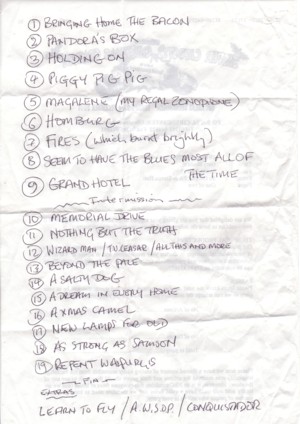 1 BRINGING HOME THE BACON
2 PANDORA'S BOX
3 HOLDING ON
4 PIGGY PIG PIG
5 MAGALENE (MY REGAL ZONOPHONE)
6 HOMBURG
7 FIRES (which burnt brightly)
8 SEEM TO HAVE THE BLUES MOST ALL OF
THE TIME
9 GRAND HOTEL
Intermission
10 MEMORIAL DRIVE
11 NOTHING BUT THE TRUTH
12 WIZARD MAN / TV CEASAR / ALL THIS AND MORE
13 BEYOND THE PALE
14 A SALTY DOG
15 A DREAM IN EVERY HOME
16 A XMAS CAMEL
17 NEW LAMPS FOR OLD
18 AS STRONG AS SAMSON
19 REPENT WALPURGIS
Fin
EXTRAS
LEARN TO FLY / A.W.S.O.P. / CONQUISTADOR